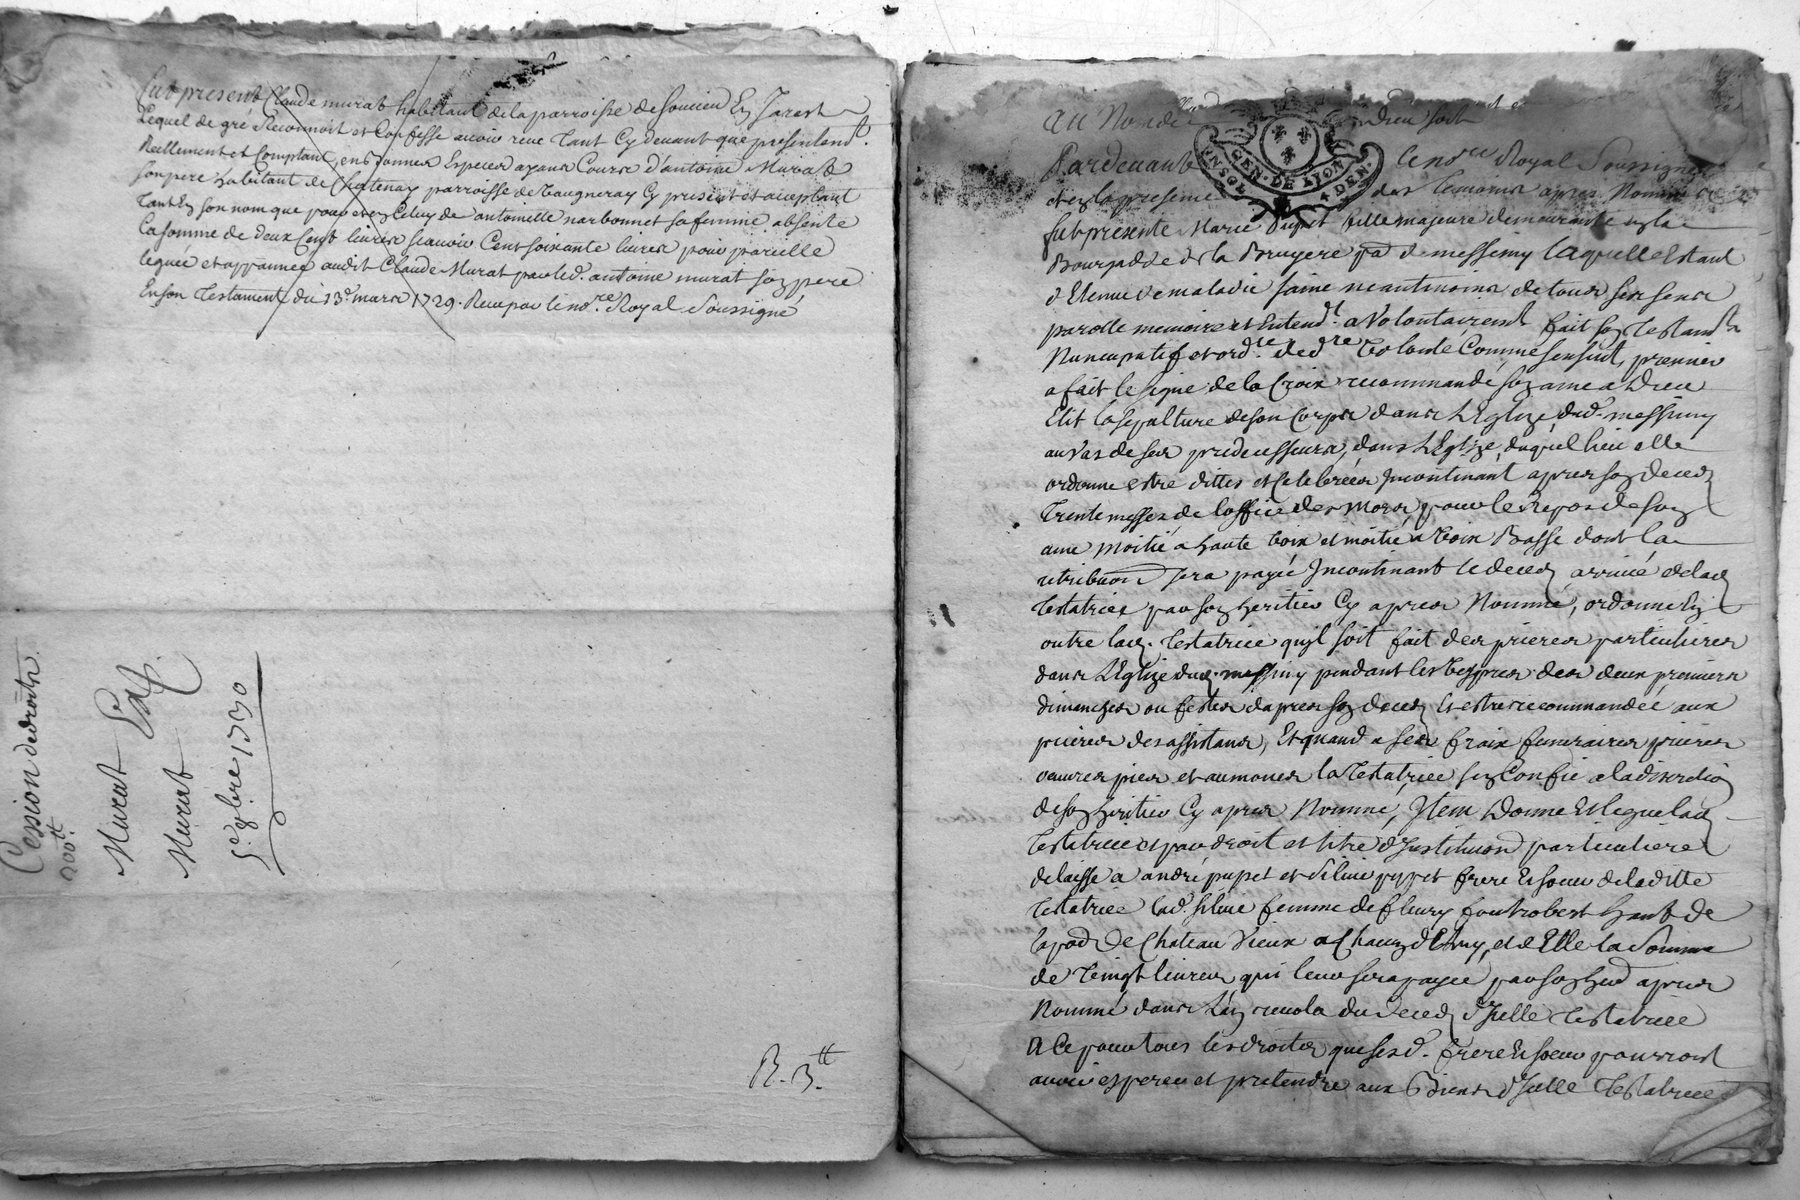 fut present Claude murat habitant de la parroisse de soucieu En Jarest
Lequel de gré Reconnoit et Confesse avoir receu tant Cy devant que presentem.t
Reellement et Comptant, en bonnes Especes ayans Cours d'antoine Murat
son pere habitant de Chatenay parroisse de Vaugneray Cy present et acceptant
tant En son nom que pour et en Celuy de antoinette narbonnet sa femme absente
La somme de deux Cent livres scavoir Cent soixante livres pour pareille
leguée et appannée audit Claude Murat par led. antoine murat son pere
En son Testament du 13.e mars 1729. Receu par le no.re Royal Soussigné
Cession de droits
200.tt
Murat
Murat
5.e 9bre 1730
R. 3.tt
au Nom de Dieu soit
GEN. DE LYON
Pardevant le no.re Royal Soussigné
et en la presence des temoins apres Nommés
fut presente Marie Pupet fille majeure demeurante en la
Bourgade de la Bruyere p.sse de messimy laquelle Estant
detenue de maladie saine neantmoins de tous ses sens
parolle memoire et Entend.t a Volontairem.t fait son testam.t
Nuncupatif et ord.re de d.re Volonté Comme sensuit, premier
a fait le signe de la Croix recommandé son ame a Dieu
Elit la sepulture de son Corps dans L'Eglize dud. messimy
au Vas de ses predecesseurs, dans L'Eglize duquel lieu elle
ordonne estre dittes et Celebrées Incontinant apres son deced
trente messes de l'office des Morts, pour le Repos de son
ame moitié a haute Voix et moitié a Voix Basse dont la
retribuon sera payée Incontinant le deced arrivé de lad
testatrice par son heritier Cy apres Nommé, ordonne En
outre lad. testatrice qu'il soit fait des prieres particulieres
dans L'Eglize dud. messimy pendant les Vespres des deux premiers
dimanches ou festes d'apres son deced Et estre recommandée aux
prieres des assistans, Et quand a ses fraix funeraires prieres
oeuvres pies et aumones la testatrice s'en Confie a la discretion
de son heritier Cy apres Nommé, Item Donne Et legue lad
testatrice et par droit et titre d'Institution particuliere
delaisse a andré pupet et Silvie pupet frere Et soeur de laditte
testatrice lad. silvie femme de fleury hant de
la p.sse de Chateau Vieux a Chacun d'Eux, et d'Elle la Somme
de Vingt livres qui leur sera payée par son her apres
Nommé dans L'an revolu du deced d'Icelle testatrice
& Ce pour tous les droits que sesd. frere Et soeur pourroient
avoir esperer et pretendre aux Biens d'Icelle testatrice